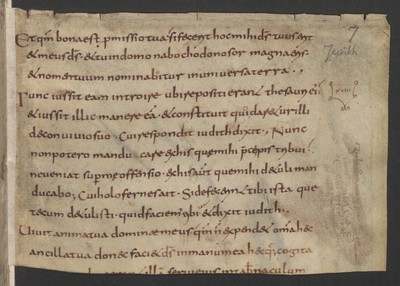 Et qm bona est pmissio tua si fecerit hoc mihi ds tuus erit
& meus ds & tu in domo nabochodonosor magna eris
& nomen tuum nominabitur in universa terra
Tunc iussit eam introire ubi repositi erant thesauri ei
& iussit illic manere eam & constituit quid dare& ur illi
de convivio suo Cui respondit iudith & dixit Nunc
non potero manducare ex his que mihi precepis tribui
ne veniat sup me offensio & his aut que mihi detuli man
ducabo Cui holofernes ait Si defecerint tibi ista que
tecum detulisti quid faciem tibi & dixit iudith
Vivit anima tua domine meus qm n expend& omia hec
ancilla tua donec faciet ds in manu mea hec que cogita
servi eius in tabernaculum
7
Judith